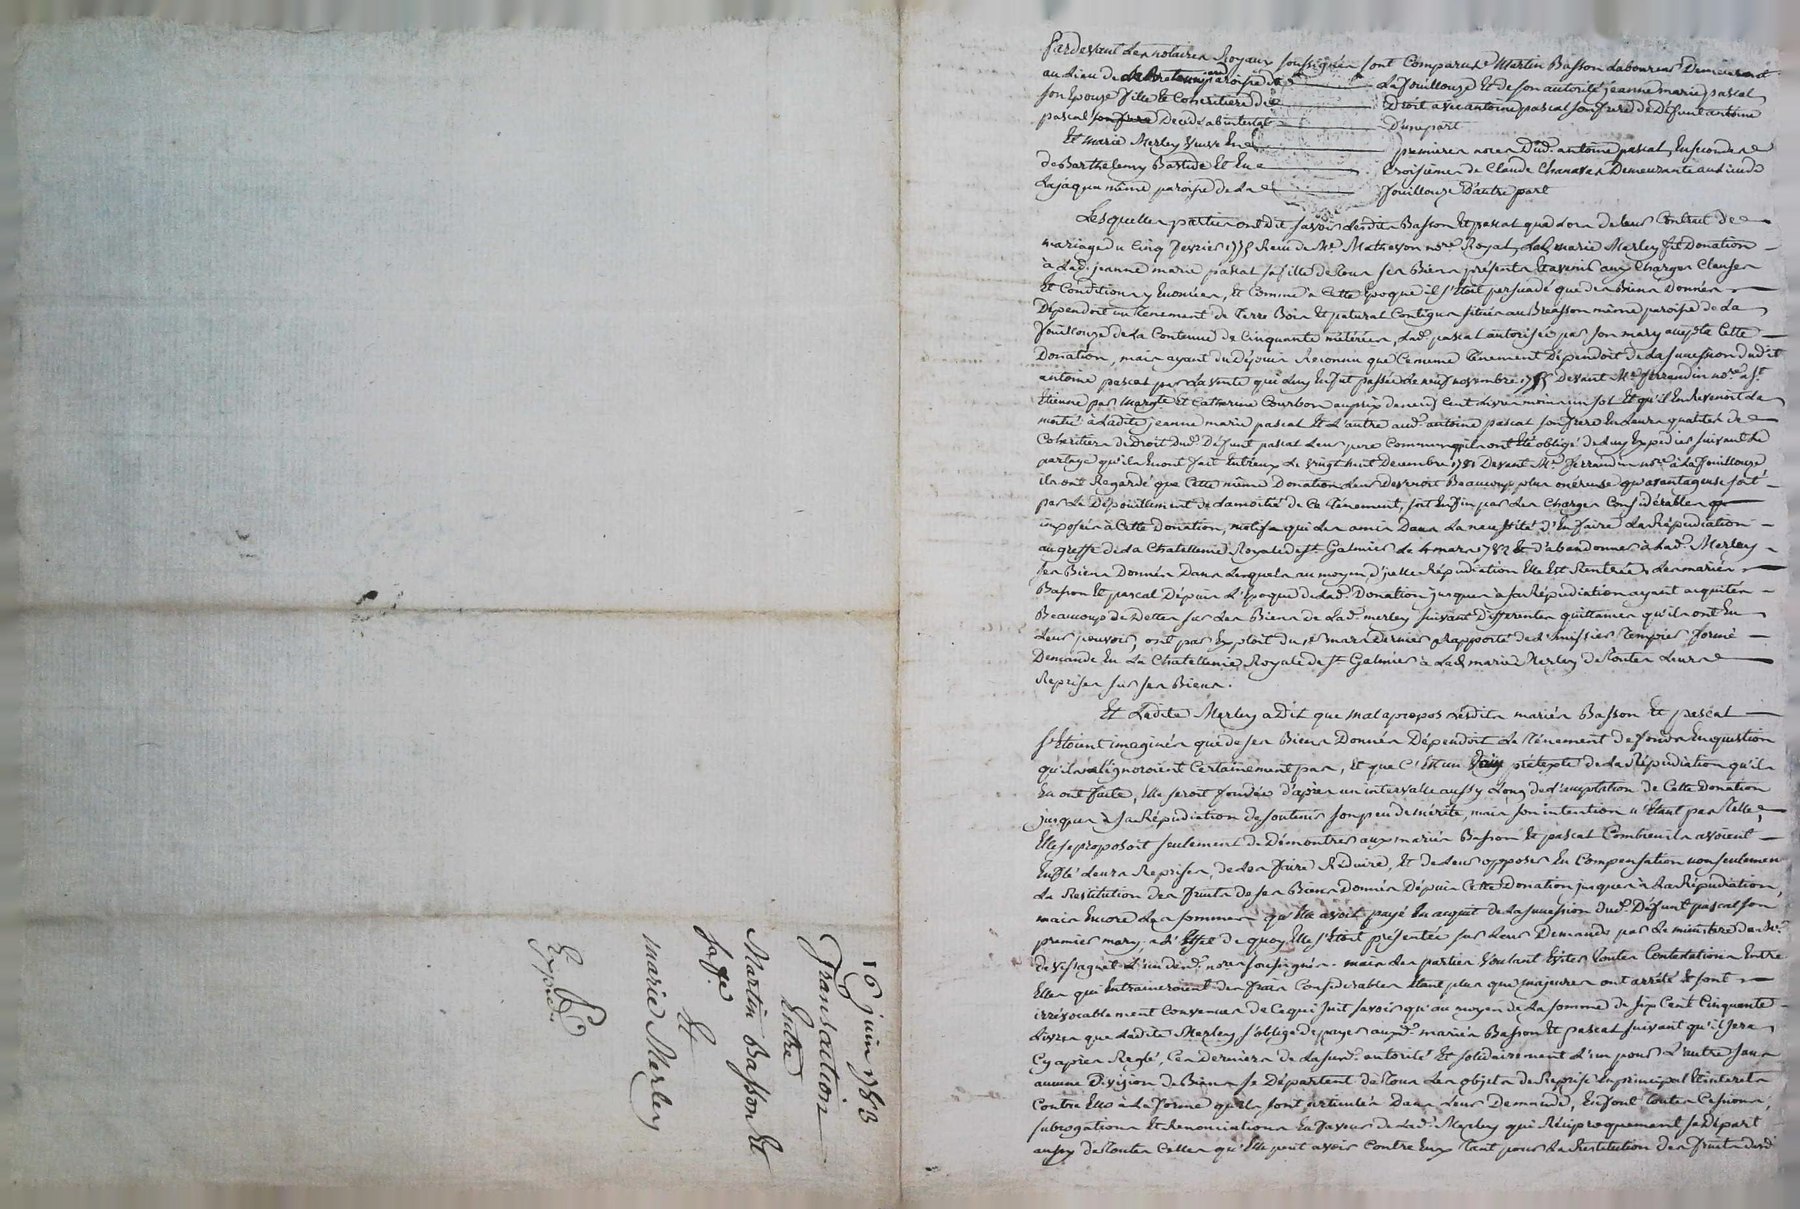 16 juin 1783
Transaction
Entre
Martin Basson Et
sa fe.
Et
marie Merley
Expéd.
Pardevant Les notaires Royaux soussignés sont Comparus Martin Basson Laboureur Demeurant
au Lieu de paroisse de La fouillouze Et de son autorité jeanne marie pascal
son Epouse fille Et Coheritiere de Droit avec antoine pascal son frere de Défunt antoine
pascal Decedé abintestat D'une part
Et marie Merley veuve En premieres noces Dud. antoine pascal, En secondes
de Barthelemy Bastide Et En troisiemes de Claude Chanavas Demeurante au Lieu de
Lajaqua même paroisse de La fouillouze D'autre part
Lesquelles parties ont Dit savoir Lesdits Basson Et pascal que Lors de leur Contrat de
mariage du Cinq fevrier 1775 Recu de Me. Mathevon nore. Royal, Lad. marie Merley fit Donation
à Lad. jeanne marie pascal sa fille de tous ses Biens présents Et avenir aux Charges Clauses
Et Conditions y Enoncées, Et Comme à Cette Epoque il s'Etoit persuadé que des Biens Donnés
Dépendoit un tenement de terre Bois Et patural Contigus situés au Breasson même paroisse de La
fouillouze de La Contenue de Cinquante métérées, Lad. pascal autorisée par son mary accepta Cette
Donation, mais ayant du Dépuis Reconnu que Ce meme tenement Dépendoit de La succession dudit
antoine pascal par La vente qui Luy En fut passée Le neuf novembre Devant Me. ferrandin nore. a St.
Etienne par Margte. Et Catherine Courbon au prix de neuf Cent Livres moins un sol Et qu'il En Revenoit La
moitié à Ladite jeanne marie pascal Et L'autre aud. antoine pascal son frere En Leurs qualités de
Coheritiers de Droit dud. Défunt pascal Leur pere Commun qu'ils ont Eté obligé de Luy Expedier suivant Le
partage qu'ils En ont fait Entreux Le vingt huit Decembre 1781 Devant Me. ferrandin nore. à La fouillouze
ils ont Regardé que Cette même Donation Leur Devenoit Beaucoup plus onéreuse qu'avantageuse soit
par Le Dépouillement de La moitié de Ce tenement, soit Enfin par Les Charges Considérables
imposées à Cette Donation, motifs qui Les a mis Dans La necessité d'En faire La Répudiation
au greffe de La Chatellenie Royale de St. Galmier Le 4 mars 1782 Et d'abandonner à Lad. Merley
ses Biens Donnés Dans Lesquels au moyen d'jcelle Répudiation Elle Est Rentrée, Les mariés
Basson Et pascal Dépuis L'Epoque de Lad. Donation jusques à La Répudiation ayant acquittés
Beaucoup de Dettes sur Les Biens de Lad. merley suivant Differentes quittances qu'ils ont En
Leur pouvoir, ont par Exploit du mars dernier Rapporté de L'huissier Tempier formé
Demande En La Chatellenie Royale de St. Galmier à Lad. marie Merley de toutes Leurs
Reprises sur ses Biens.
Et Ladite Merley a Dit que mal apropos Lesdits mariés Basson Et pascal
s'Etoient imaginés que de ses Biens Donnés Dépendoit Le tenement de fonds En question
qu'ils n'ignoroient Certainement pas, Et que C'Est un prétexte de La Répudiation qu'ils
En ont faite, Elle seroit fondée d'après un intervalle aussy Long de L'acceptation de Cette Donation
jusques à La Répudiation de soutenir son peu de mérite, mais son intention n'Etant pas telle,
Elle se proposoit seulement de Démontrer aux mariés Basson Et pascal Combien ils avoient
Enflé Leurs Reprises, de Les faire Reduire, Et de Leur opposer En Compensation non seulement
La Restitution des fruits de ses Biens Donnés Dépuis Cette Donation jusques à La Répudiation,
mais Encore Les sommes qu'Elle avoit payé En acquit de La succession dud. Défunt pascal son
premier mary, a L'Effet de quoy Elle s'Etoit présentée sur Leur Demande par Le ministere de Me.
L'un des nores. soussignés. mais Les parties voulant Eviter toutes Contestations Entre
Elles qui Entraineroient des frais Considerables Etant plus que majeures ont arrêté Et sont
irrévocablement Convenues de Ce qui suit savoir qu'au moyen de La somme de six Cent Cinquante
Livres que Ladite Merley s'oblige de payer auxd. mariés Basson Et pascal suivant qu'il sera
Cy après Reglé, Ces Derniers de La sud. autorité Et solidairement L'un pour L'autre sans
aucune Division de Biens se Départent de tous Les objets de Reprise En principal Et interets
Contre Elle à La forme qu'ils sont articulés Dans Leur Demande, En font toutes Cessions,
subrogations Et Renonciations En faveur de Lad. Merley qui Réciproquement se Départ
aussy de toutes Celles qu'Elle peut avoir Contre Eux tant pour La Restitution des fruits desd